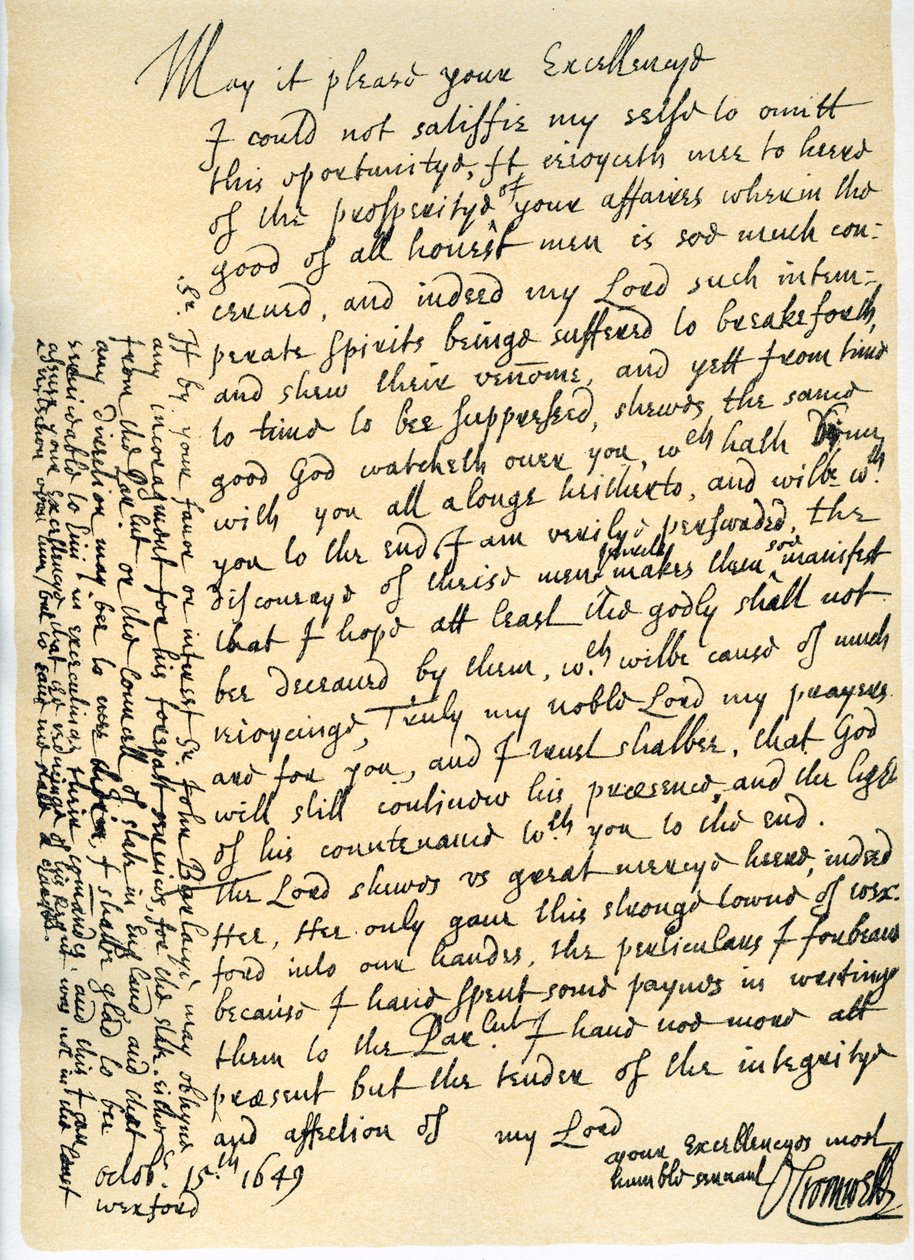 May it please your Excellencye
I could not satisfie my selfe to omitt
this oportunitye, It reioyceth mee to heere
of the prosperitye of your affaires wherin the
good of all honest men is soe much con:
cerned, and indeed my Lord such intem:
perate spirits beinge suffered to breake forth,
and shew their venome, and yett from time
to time to bee suppressed, shewes the same
good God watcheth over you, wch hath
with you all alonge heitherto, and wilbe wth.
you to the end, I am verilye perswaded, the
discourage of theise men makes them soe manifest
that I hope att least the godly shall not
bee deceaued by them, wch. wilbe cause of much
reioycinge, Truly my noble Lord my prayers
are for you, and I trust shalbee, that God
will still continew his præsence, and the light
of his countenance wth you to the end.
The Lord shewes vs great mercye heere, indeed
Hee, Hee only gaue this stronge towne of wex:
ford into our handes, the perticulars I forbeare
because I haue spent some paynes in writing
them to the Parlnt. I haue noe more att
præsent but the tender of the integritye
and affection of my Lord
your Excellencyes most
humble seruant
OCromwell
Octob. 15.th 1649
wexford
Sr. If by your fauor or interest Sr. John may obtayne
any incoragment for his forepast seruices, for the state, either
from the Parlnt. or the Councell of state in England, and that
any direction may bee to mee therin, I shalbe glad to bee
seruicable to him in executinge their comandes, and this I can
assure your Excellencye that the of his Regmt was not in the least